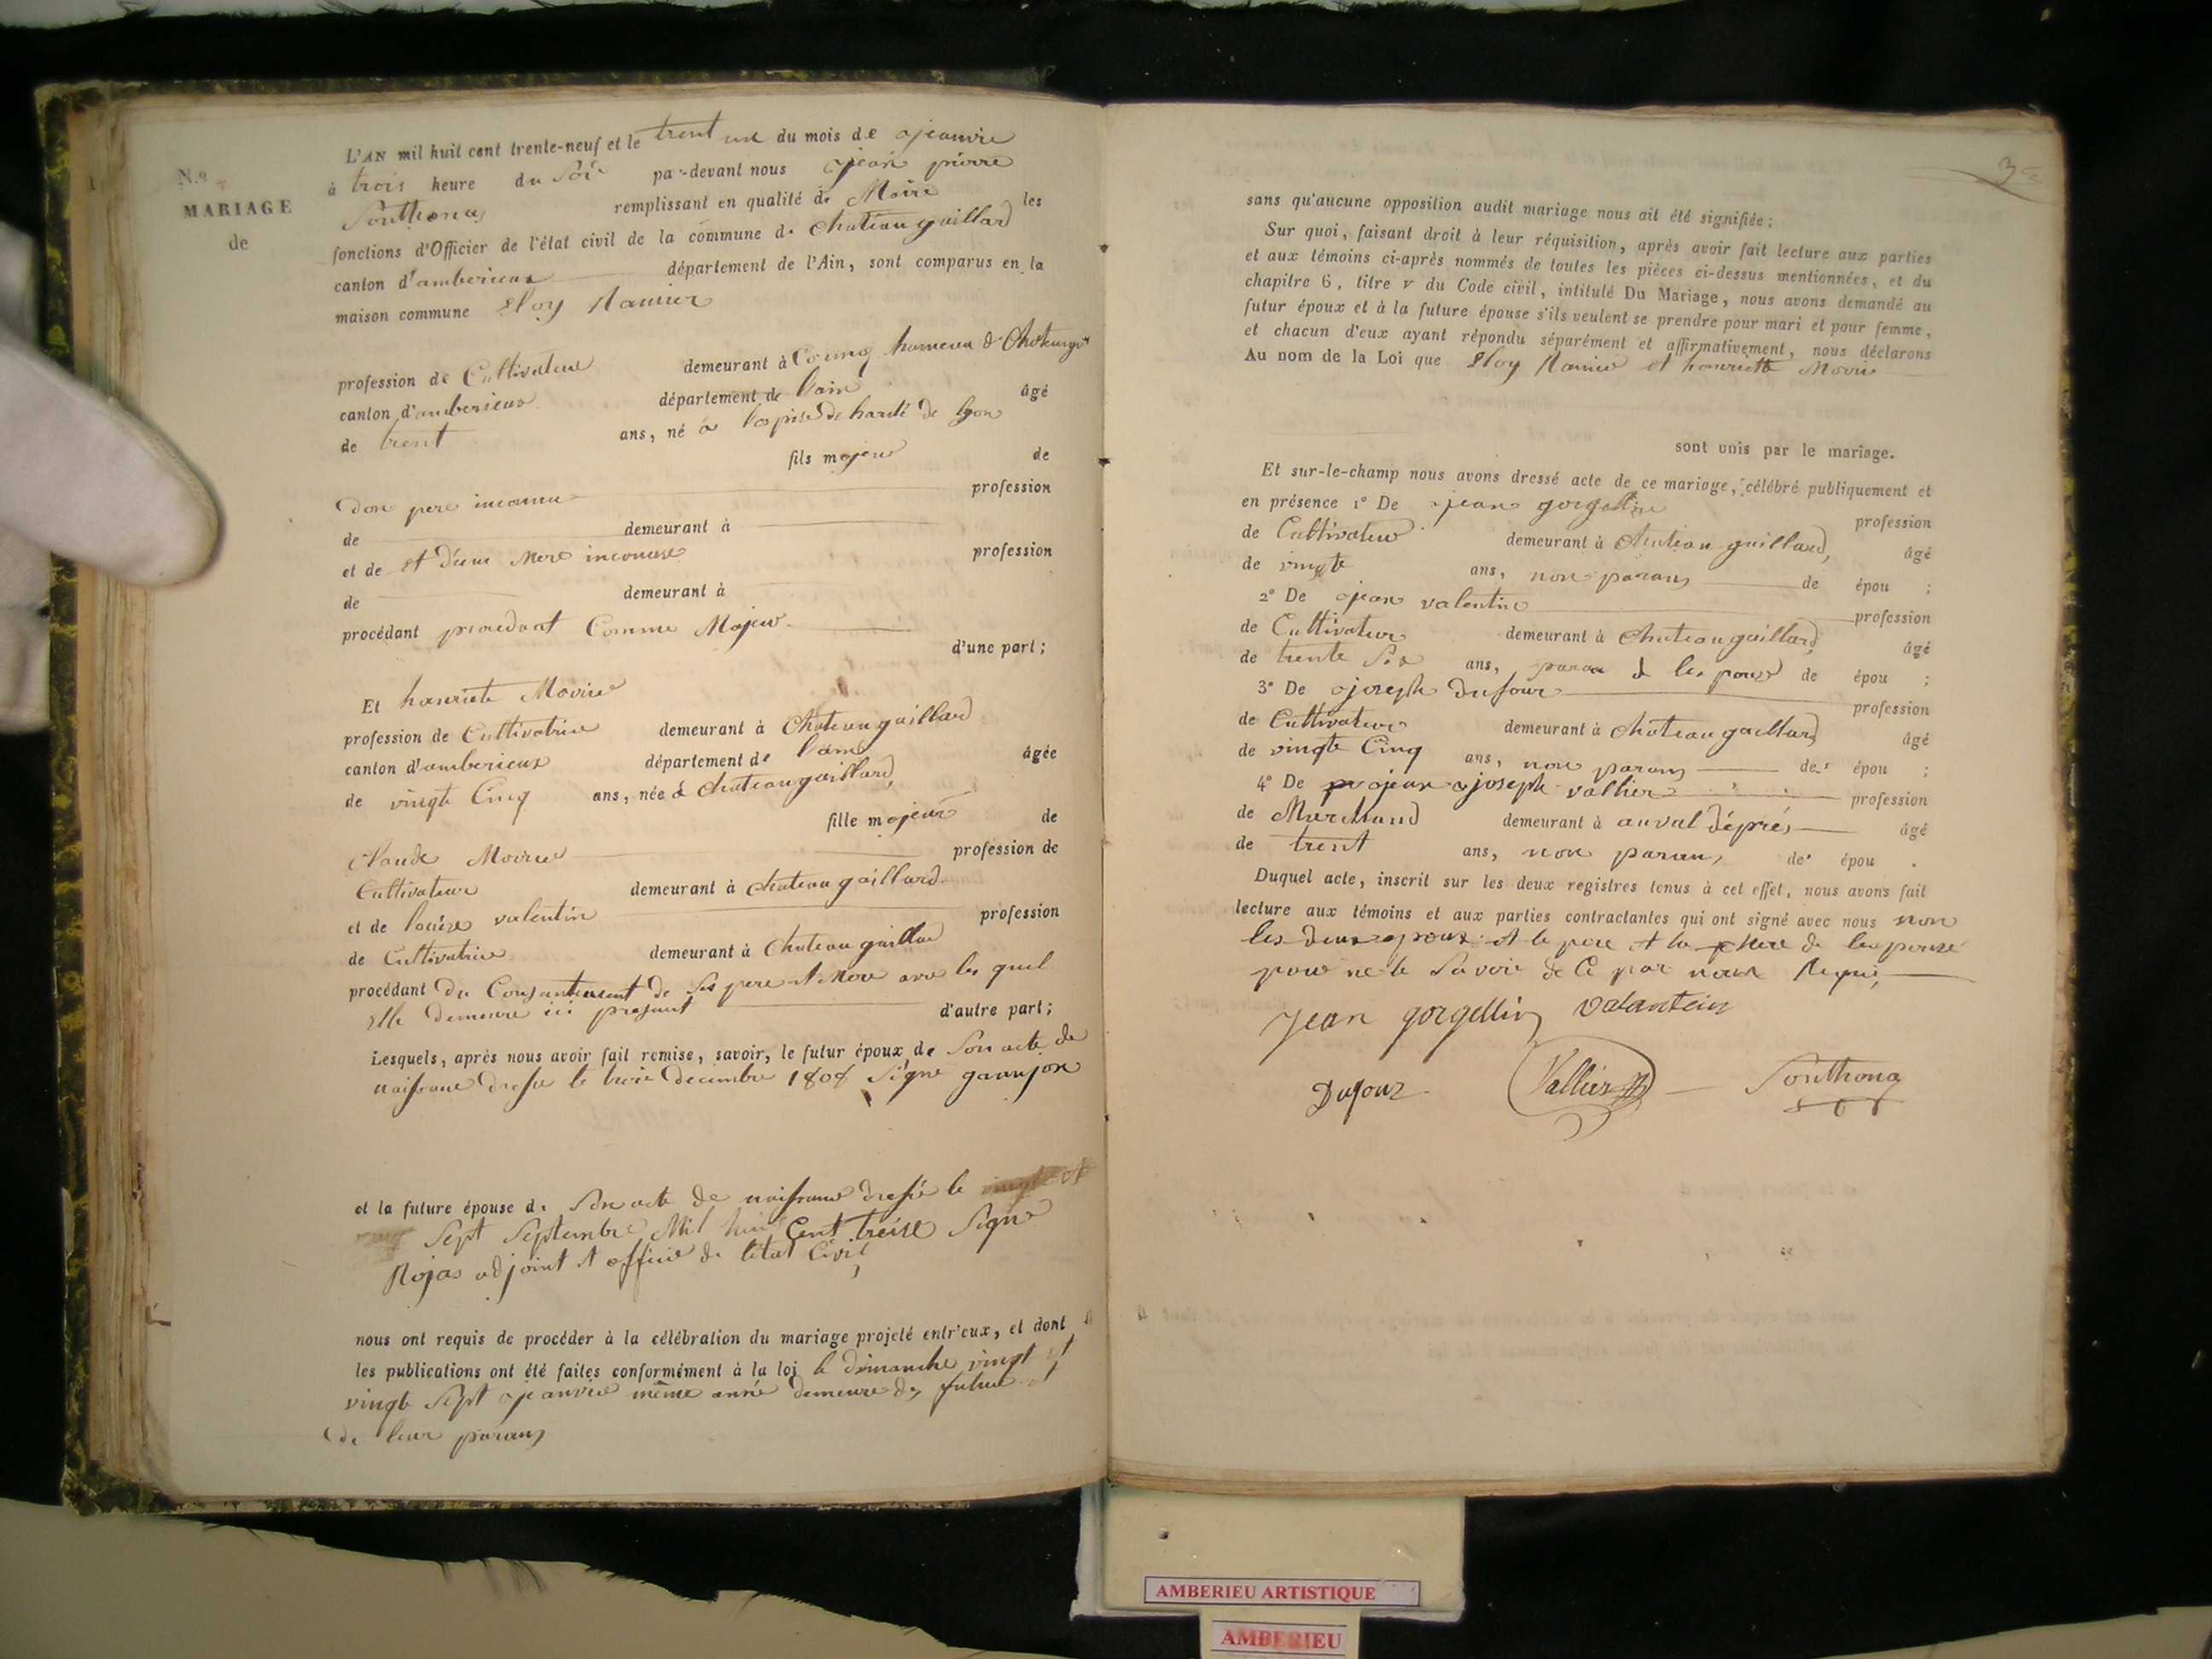 N.º
MARIAGE
de
L'AN mil huit cent trente-neuf et le trent une du mois de jeanvie
à trois heure du Soir par-devant nous jean pierre
Sonthonas remplissant en qualité de Maire les
fonctions d'Officier de l'état civil de la commune de Chateaugaillard
canton d'amberieux département de l'Ain, sont comparus en la
maison commune Eloy Ramier
profession de Cultivateur demeurant à hameau d
canton d'amberieux département de l'ain âgé
de trent ans, né à de Lyon
fils majeur de
Don pere inconnu profession
de demeurant à
et de et d'une Mere inconnue profession
de demeurant à
procédant procedant Comme Majeur
d'une part;
Et hanriete Moirie
profession de Cultivatrice demeurant à Chateaugaillard
canton d'amberieux département de l'ain âgée
de vingte Cinq ans, née à chateaugaillard
fille majeur de
Claude Moirie profession de
Cultivateur demeurant à chateaugaillard
et de louise valentin profession
de Cultivatrice demeurant à chateaugaillar
procédant du Consentement de Ses pere et Mere avec les quel
Elle demeure ici present d'autre part;
Lesquels, après nous avoir fait remise, savoir, le futur époux de Son acte de
naissance dressé le trois decembre 1808 Signé
et la future épouse de Son acte de naissance dressé le
Sept Septembre Mil huit Cent treise Signe
Rojas adjoint et officier de l'état Civil,
nous ont requis de procéder à la célébration du mariage projeté entr'eux, et dont
les publications ont été faites conformément à la loi le dimanche vingt et
vingte Sept jeanvie même année demeure des future et
de leur parans
3
sans qu'aucune opposition audit mariage nous ait été signifiée;
Sur quoi, faisant droit à leur réquisition, après avoir fait lecture aux parties
et aux témoins ci-après nommés de toutes les pièces ci-dessus mentionnées, et du
chapitre 6, titre v du Code civil, intitulé Du Mariage, nous avons demandé au
futur époux et à la future épouse s'ils veulent se prendre pour mari et pour femme,
et chacun d'eux ayant répondu séparément et affirmativement, nous déclarons
Au nom de la Loi que Eloy Ramier et hanriette Moirie
sont unis par le mariage.
Et sur-le-champ nous avons dressé acte de ce mariage, célébré publiquement et
en présence 1º De jean gorgellin profession
de Cultivateur demeurant à Chateau gaillard, âgé
de vingte ans, non parans de épou ;
2º De jean valentin profession
de Cultivateur demeurant à Chateaugaillard âgé
de trente Six ans, paran de les pouse de épou ;
3º De joseph dufour profession
de Cultivateur demeurant à chateaugaillard âgé
de vingte Cinq ans, non parans de épou ;
4º De jean joseph vallier profession
de Marchand demeurant à âgé
de trent ans, non parans de épou .
Duquel acte, inscrit sur les deux registres tenus à cet effet, nous avons fait
lecture aux témoins et aux parties contractantes qui ont signé avec nous non
les deux epoux et le pere et la Mere de les pouse
pour ne le Savoir de Ce par nous Requis
Jean gorgellin valantein
Dufour Vallier Sonthona
AMBERIEU ARTISTIQUE
AMBERIEU